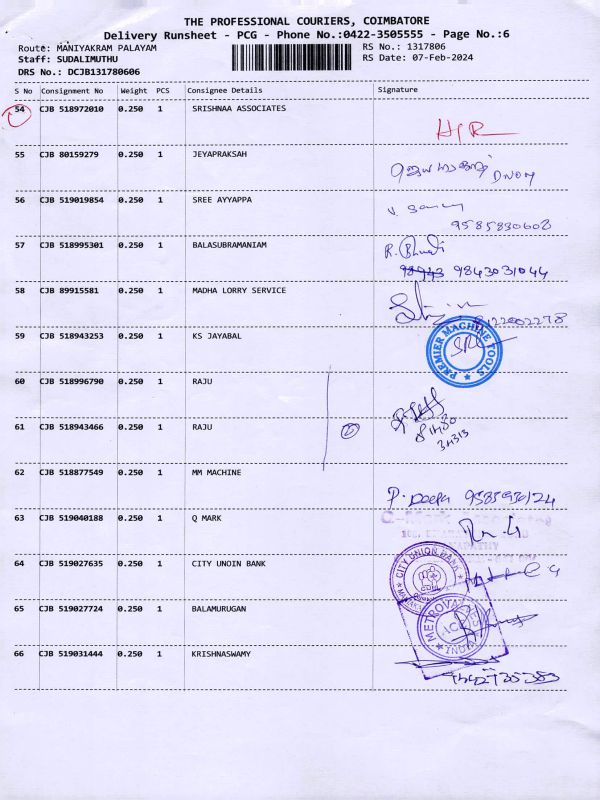 THE PROFESSIONAL COURIERS, COIMBATORE
Delivery Runsheet - PCG - Phone No.:0422-3505555 - Page No.:6
Route: MANIYAKRAM PALAYAM RS No.: 1317806
Staff: SUDALIMUTHU RS Date: 07-Feb-2024
DRS No.: DCJB131780606
S No Consignment No Weight PCS Consignee Details Signature
54 CJB 518972010 0.250 1 SRISHNAA ASSOCIATES
H/R
55 CJB 80159279 0.250 1 JEYAPRAKSAH
56 CJB 519019854 0.250 1 SREE AYYAPPA
9585830608
57 CJB 518995301 0.250 1 BALASUBRAMANIAM
9843031044
58 CJB 89915581 0.250 1 MADHA LORRY SERVICE
59 CJB 518943253 0.250 1 KS JAYABAL
PREMIER MACHINE TOOLS
60 CJB 518996790 0.250 1 RAJU
61 CJB 518943466 0.250 1 RAJU
62 CJB 518877549 0.250 1 MM MACHINE
P. Deepa
63 CJB 519040188 0.250 1 Q MARK
64 CJB 519027635 0.250 1 CITY UNOIN BANK
CITY UNION BANK
65 CJB 519027724 0.250 1 BALAMURUGAN
66 CJB 519031444 0.250 1 KRISHNASWAMY